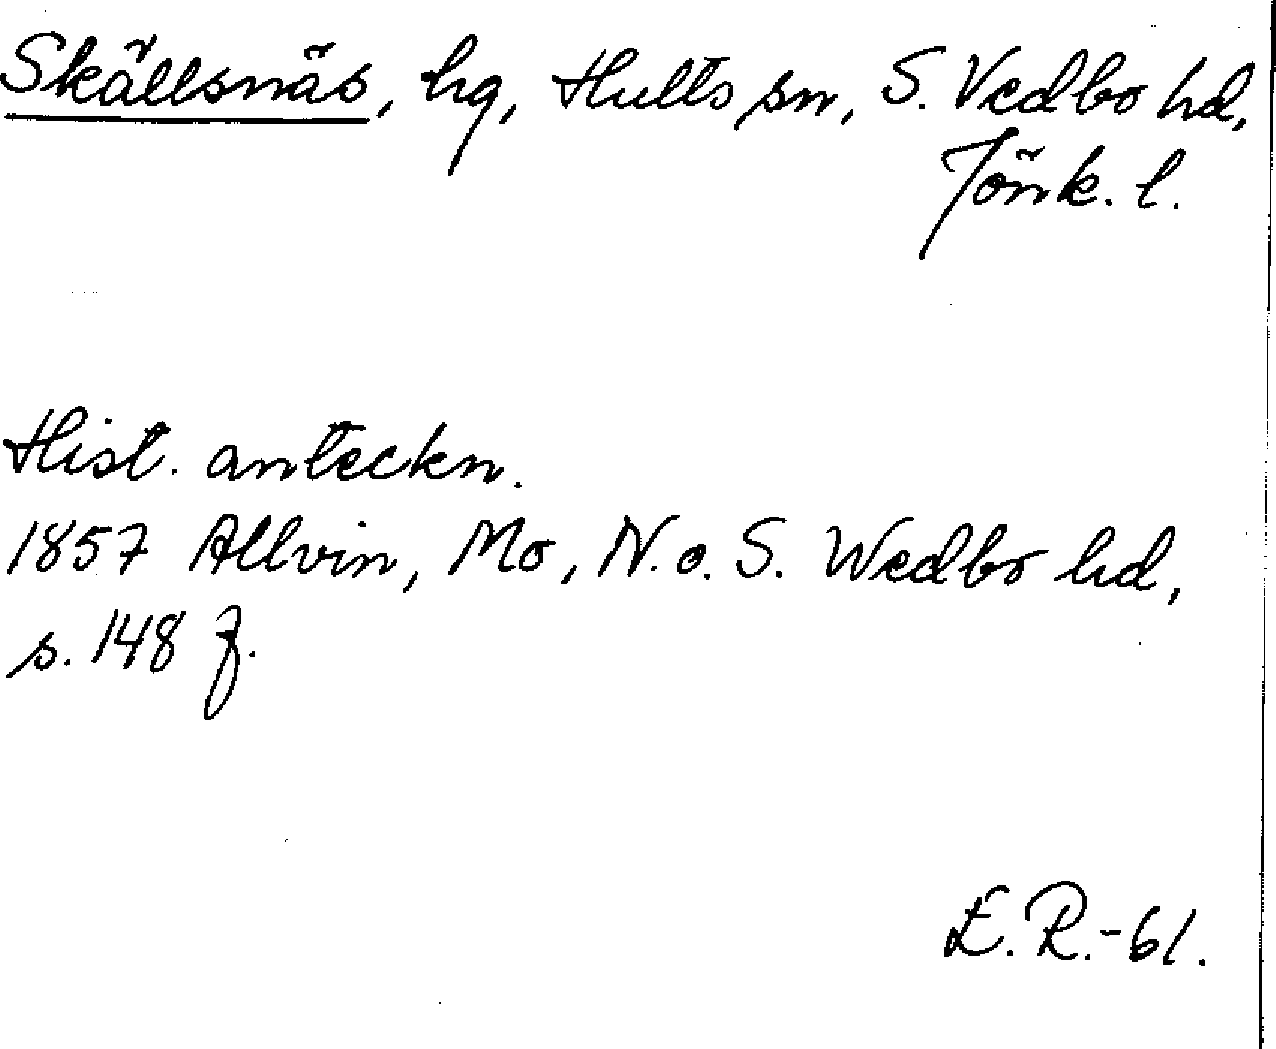 Skällsnäs, hg, Hults sn, S. Vedbo hd,
Jönk. l.
Hist. anteckn.
1857 Allvin, Mo, N. o. S. Wedbo hd,
s. 148 f.
E. R. -61.